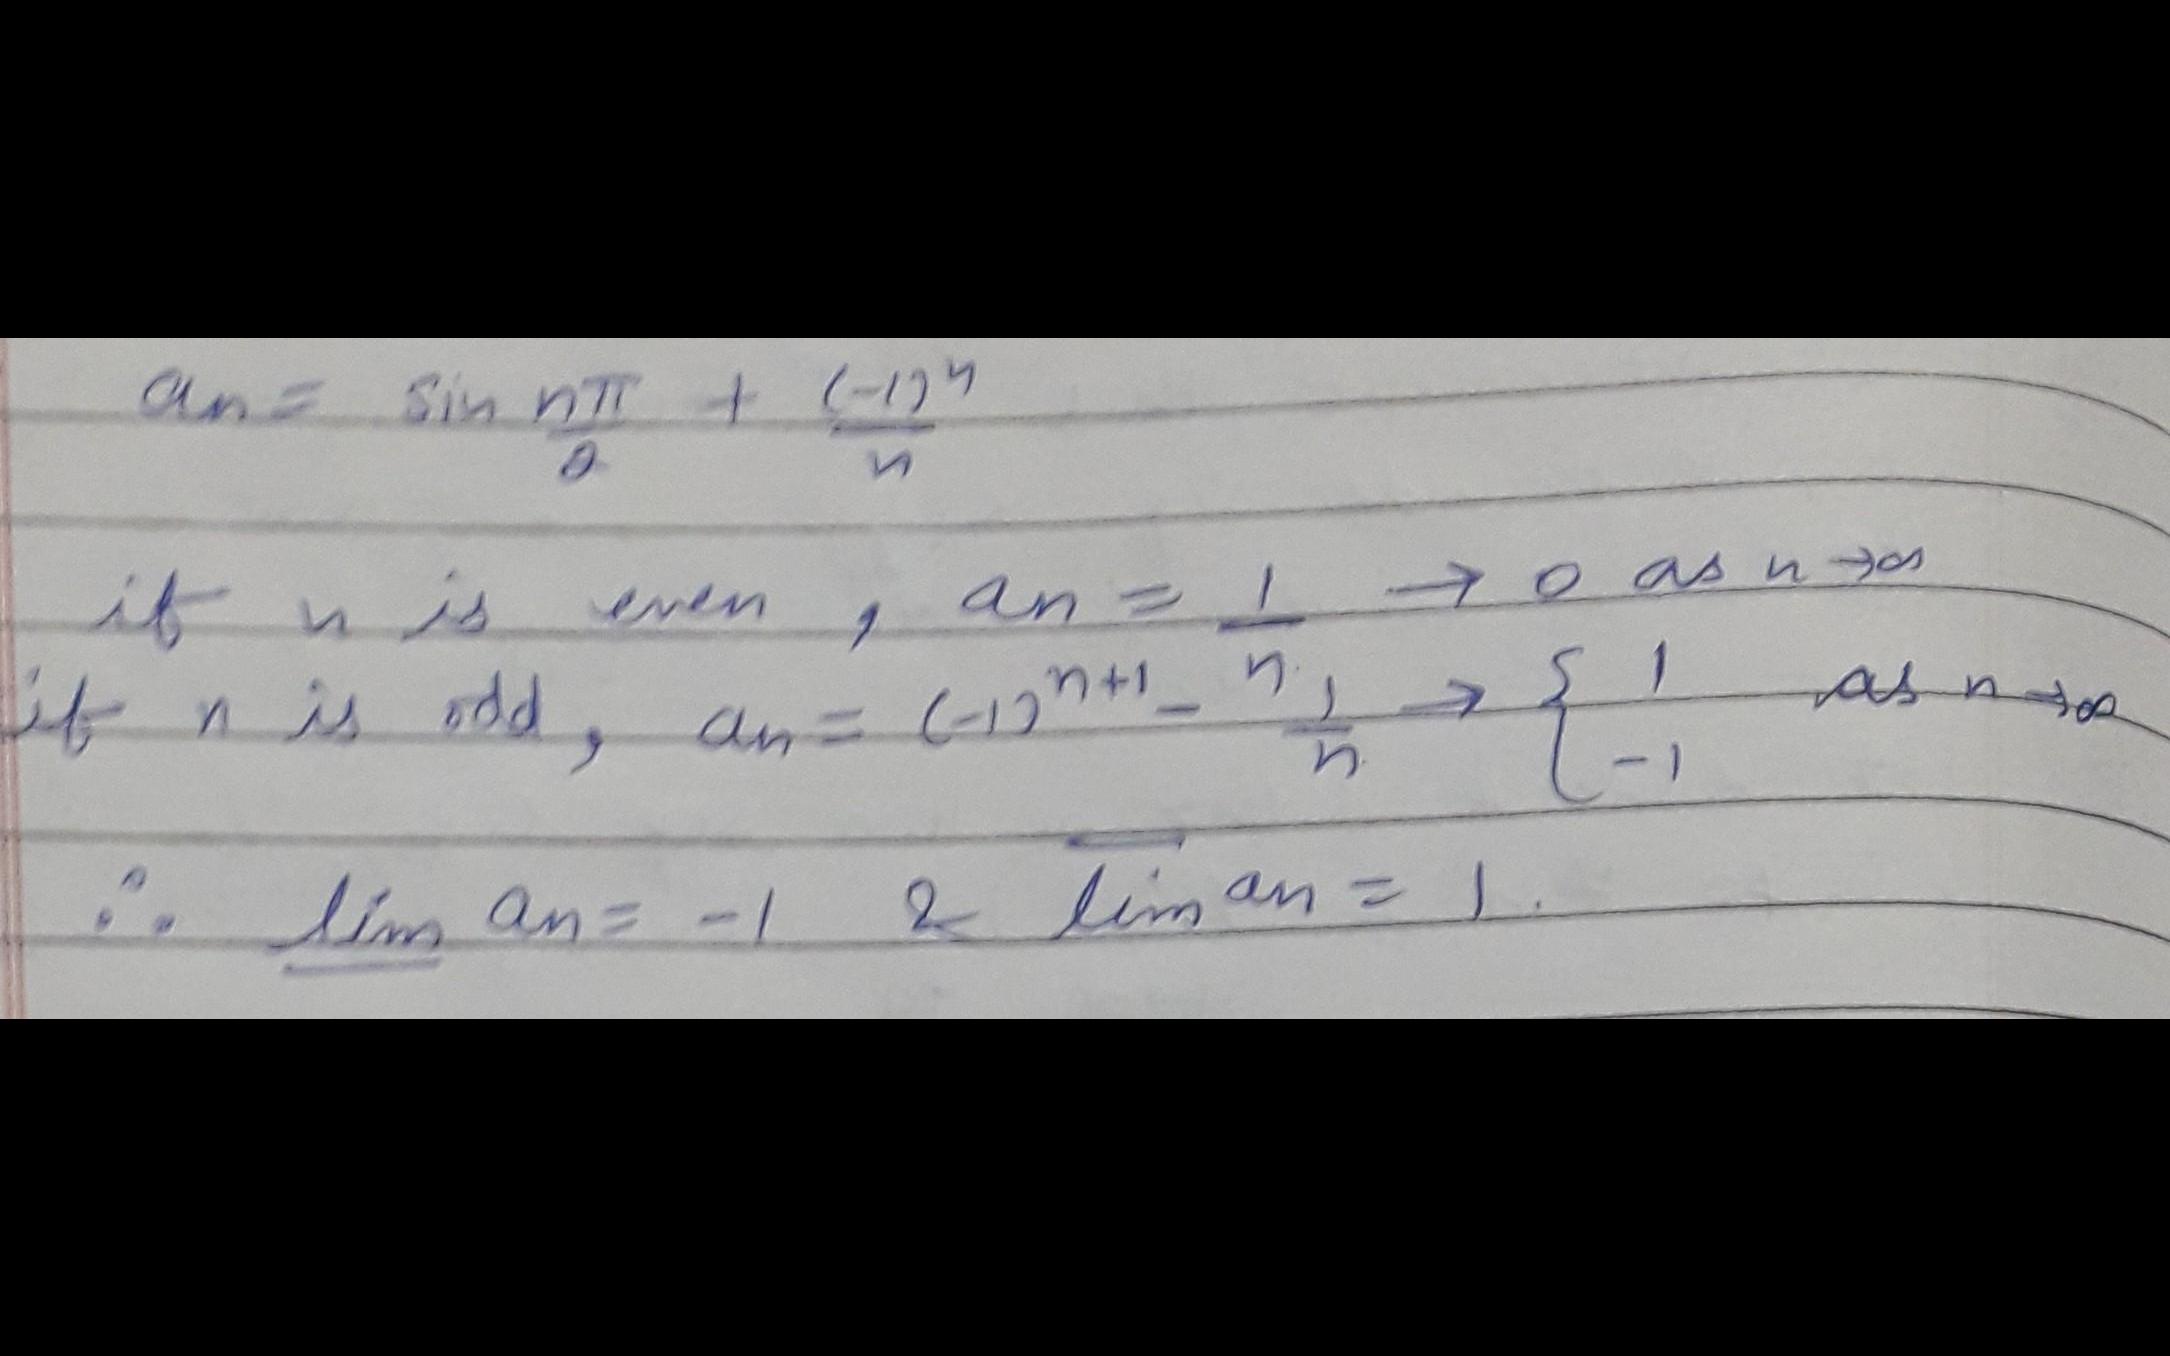 an = sin nπ/2 + (-1)^n/n
if n is even, an = 1/n → 0 as n→∞
if n is odd, an = (-1)^n+1 - 1/n → { 1 -1 as n→∞
∴ lim an = -1 & lim an = 1.